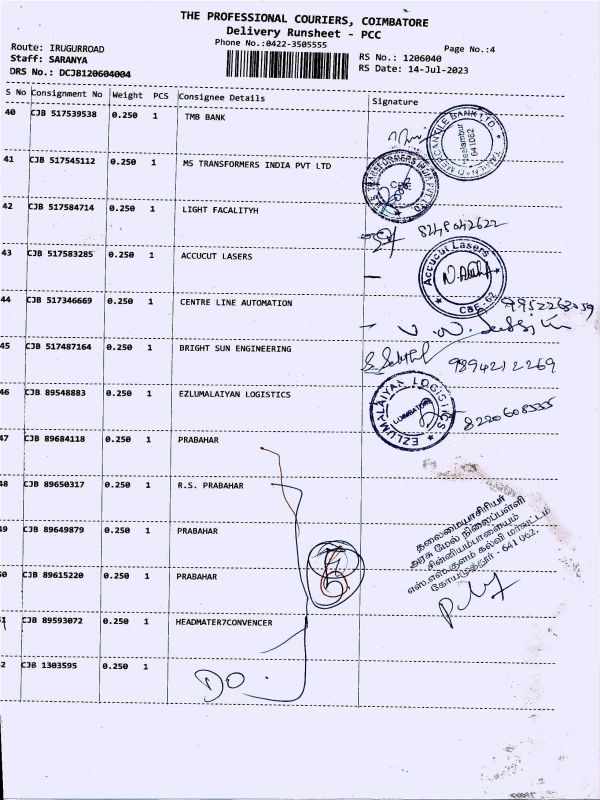 THE PROFESSIONAL COURIERS, COIMBATORE
Delivery Runsheet - PCC
Phone No.:0422-3505555
Page No.:4
Route: IRUGURROAD
RS No.: 1206040
Staff: SARANYA
RS Date: 14-Jul-2023
DRS No.: DCJB120604004
S No Consignment No Weight PCS Consignee Details Signature
40 CJB 517539538 0.250 1 TMB BANK
TAMILNAD MERCANTILE BANK LTD.
641062
41 CJB 517545112 0.250 1 MS TRANSFORMERS INDIA PVT LTD
M.S. TRANSFORMERS INDIA PVT LTD
CBE
42 CJB 517584714 0.250 1 LIGHT FACALITYH
8248042622
43 CJB 517583285 0.250 1 ACCUCUT LASERS
Accucut Lasers
CBE-62
44 CJB 517346669 0.250 1 CENTRE LINE AUTOMATION
9952268059
45 CJB 517487164 0.250 1 BRIGHT SUN ENGINEERING
9894212269
46 CJB 89548883 0.250 1 EZLUMALAIYAN LOGISTICS
EZLUMALAIYAN LOGISTICS
COIMBATORE
8220608555
47 CJB 89684118 0.250 1 PRABAHAR
48 CJB 89650317 0.250 1 R.S. PRABAHAR
49 CJB 89649879 0.250 1 PRABAHAR
50 CJB 89615220 0.250 1 PRABAHAR
தலைமையாசிரியர்
அரசு மேல் நிலைப்பள்ளி
சின்னியம்பாளையம்
எஸ்.எஸ்.குளம் கல்வி மாவட்டம்
கோயமுத்தூர் - 641 062.
51 CJB 89593072 0.250 1 HEADMATER7CONVENCER
52 CJB 1303595 0.250 1
DO.